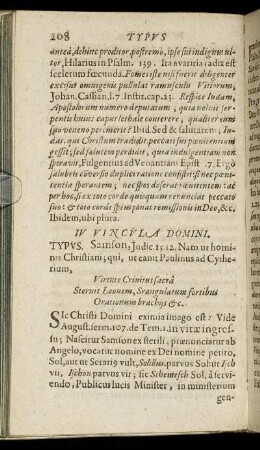 208 TYPVS
antea, dehinc proditor, postremò, ipse sui indignus ul-
tor, Hilarius in Psalm. 139. Ita avaritia radix est
scelerum fœcunda. Fomes iste nisi fuerit diligenter
excisus omnigenis pullulat ramusculis Vitiorum,
Johan. Cassian, l. 7. Instit. cap. 23. Respice Iudam,
Apostolorum numero deputatum; quia noluit ser-
pentis huius caput lethale conterere, qualiter eum
suo veneno peremerit? Ibid. Sed & salutarem: Iu-
das, qui Christum tradidit, peccati sui pœnitentiam
gessit; sed salutem perdidit, quia indulgentiam non
speravit, Fulgentius ad Venantiam Epist. 7. Ergò
salubris conversio duplici ratione consistit, si nec pœni-
tentia sperantem; nec spes deserat pœnitentem: ac
per hoc, si ex toto corde quis quam renunciat peccato
suo; & toto corde spem ponat remissionis in Deo, &c.
Ibidem, ubi plura.
IV VINCVLA DOMINI.
TYPVS. Samson, Judic 15. 12. Nam ut homi-
nis Christiani; qui, ut canit Paulinus ad Cythe-
rium,
Virtute Crinitus sacrâ
Sternit Leonem, Strangulatum fortibus
Orationum brachijs &c.
SIc Christi Domini eximia imago est: Vide
August. serm. 107. de Tem. 1. in vitæ ingres-
su; Nascitur Samson ex sterili, prænunciatur ab
Angelo, vocatur nomine ex Dei nomine petito,
Sol, aut ut Serarig vult, Solillus, parvus Sol: ut Isch
vir, Ischon parvus vir; sic Schemesch Sol, à servi-
endo, Publicus lucis Minister, in ministerium
gen-